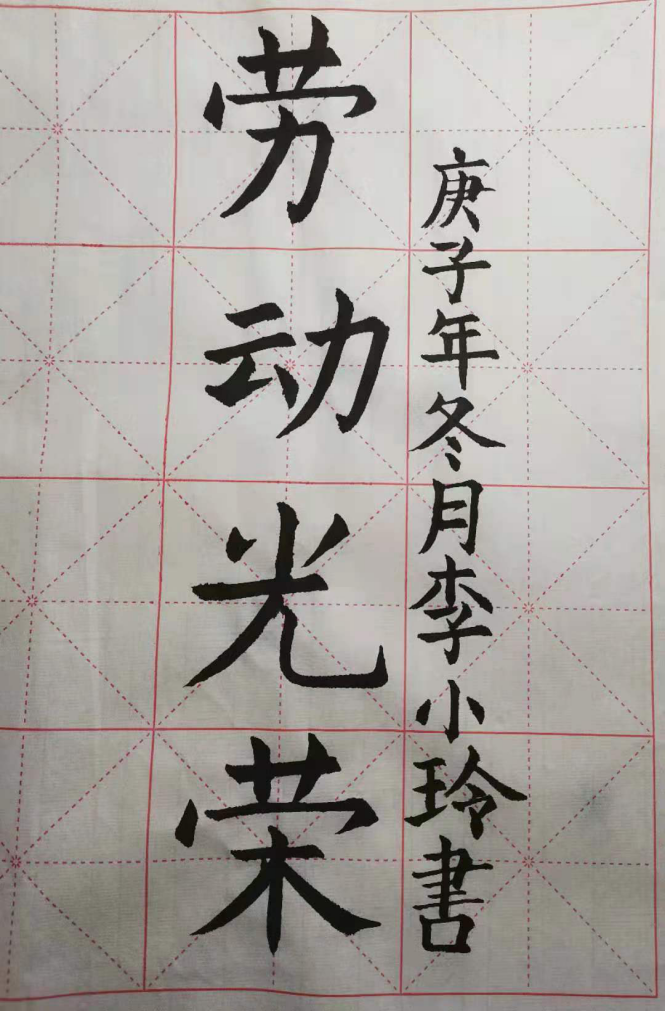 劳动光荣
庚子年冬月李小玲書